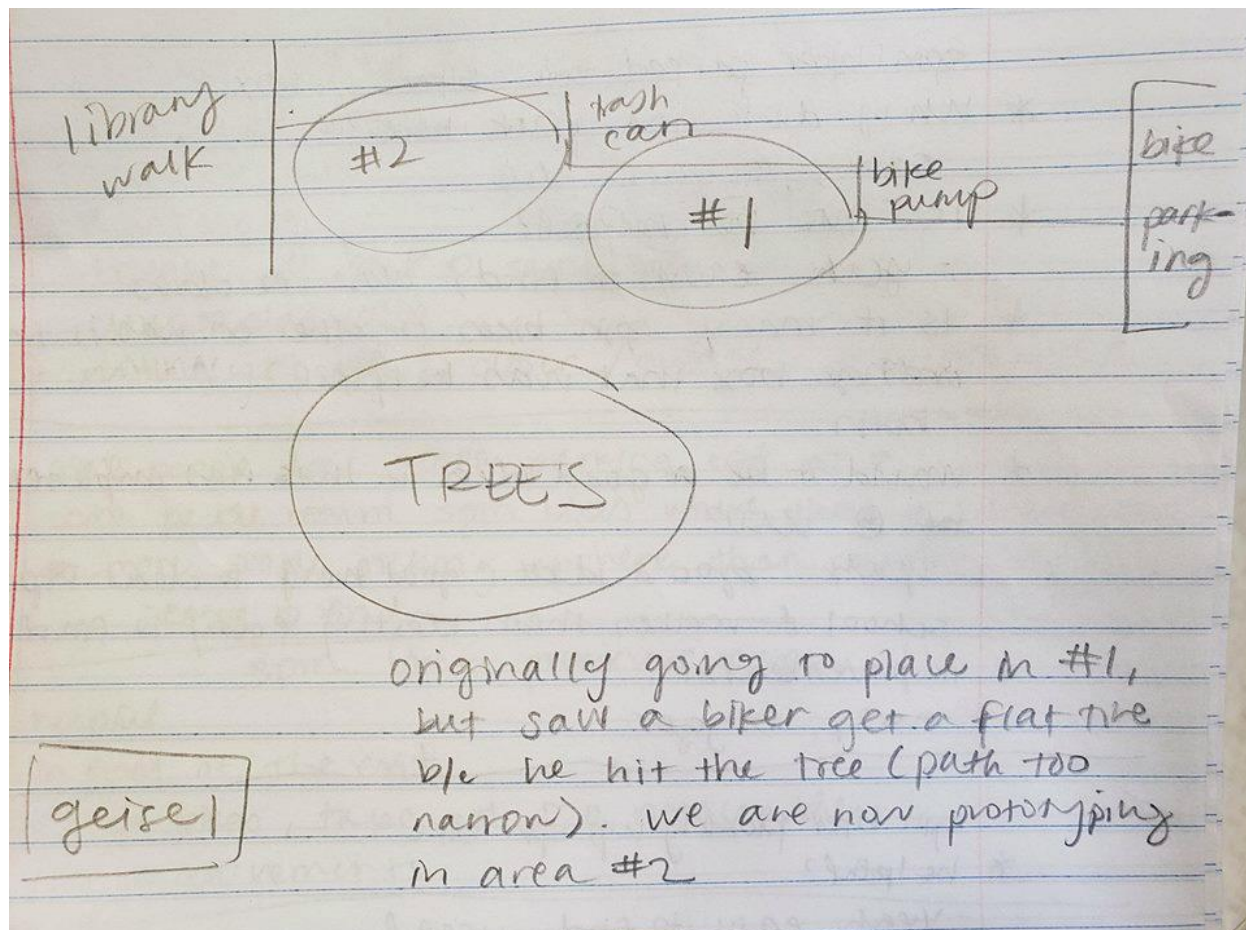 library
walk
#2
trash
can
#1
bike
pump
bike
park-
ing
TREES
originally going to place in #1,
but saw a biker get a flat tire
b/c he hit the tree (path too
narrow). we are now prototyping
in area #2
geisel